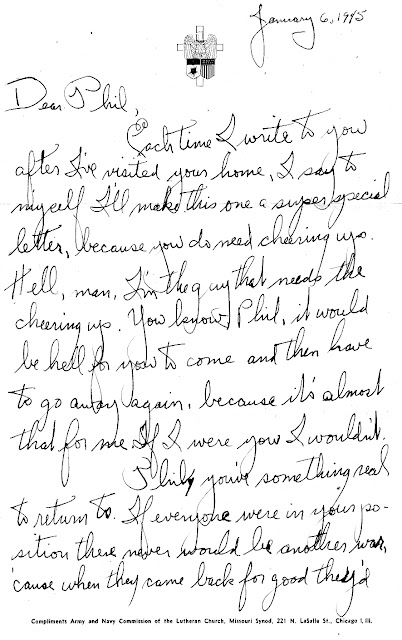 January 6, 1945
Dear Phil,
Each time I write to you
after I've visited your home, I say to
myself I'll make this one a super special
letter, because you do need cheering up.
Hell, man, I'm the guy that needs the
cheering up. You know, Phil, it would
be hell for you to come and then have
to go away again, because it's almost
that for me. If I were you I wouldn't.
Phil, you've something real
to return to. If everyone were in your po-
sition there never would be another war,
'cause when they came back for good they'd
Compliments Army and Navy Commission of the Lutheran Church, Missouri Synod, 221 N. LaSalle St., Chicago 1, Ill.